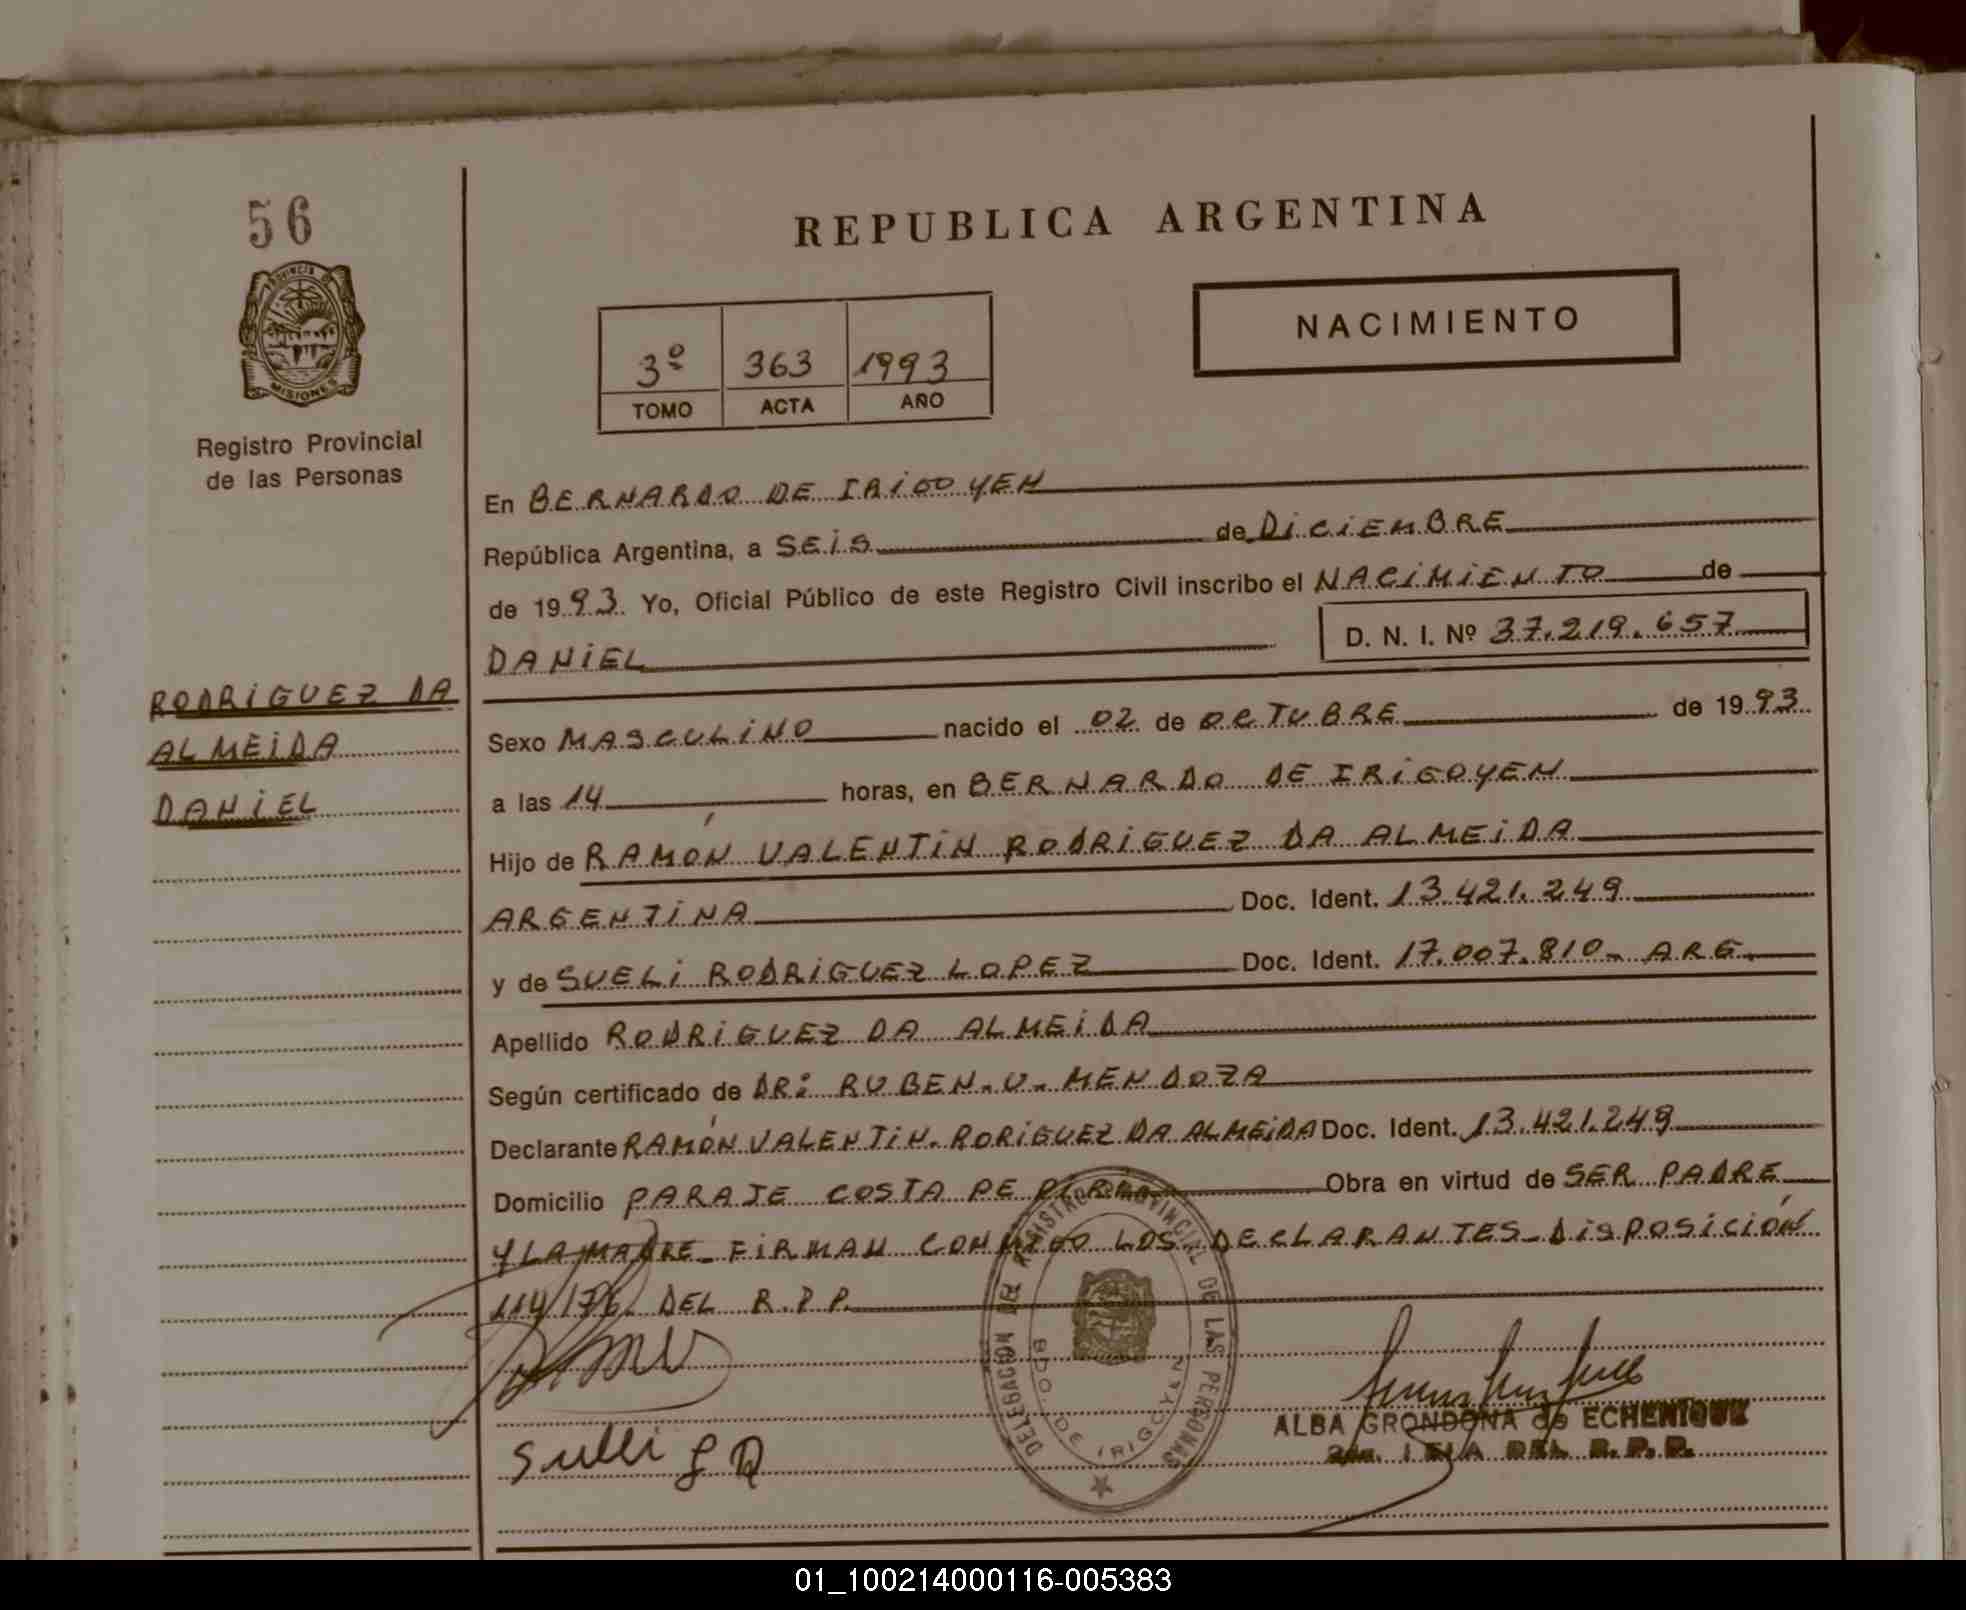 56
PROVINCIA DE
MISIONES
Registro Provincial
de las Personas
RODRIGUEZ DA
ALMEIDA
DANIEL
REPUBLICA ARGENTINA
NACIMIENTO
3º 363 1993
TOMO ACTA AÑO
En BERNARDO DE IRIGOYEN
República Argentina, a SEIS de DICIEMBRE
de 1993 Yo, Oficial Público de este Registro Civil inscribo el NACIMIENTO de
DANIEL D. N. I. Nº 37.219.657
Sexo MASCULINO nacido el 02 de OCTUBRE de 1993
a las 14 horas, en BERNARDO DE IRIGOYEN
Hijo de RAMÓN VALENTIN RODRIGUEZ DA ALMEIDA
ARGENTINA Doc. Ident. 13.421.249
y de SUELI RODRIGUEZ LOPEZ Doc. Ident. 17.007.810- ARG.
Apellido RODRIGUEZ DA ALMEIDA
Según certificado de DR: RUBEN. U. MENDOZA
Declarante RAMÓN VALENTIN. RORIGUEZ DA ALMEIDA Doc. Ident. 13.421.249
Domicilio PARAJE COSTA DE Obra en virtud de SER PADRE
Y LA MADRE- FIRMAN CONMIGO LOS DECLARANTES- DISPOSICIÓN
114/76. DEL R.P.P.
DELEGACION DEL REGISTRO PROVINCIAL DE LAS PERSONAS
BDO. DE IRIGOYEN
ALBA GRONDONA de ECHENIQUE
DEL R. P. P.
01_100214000116-005383